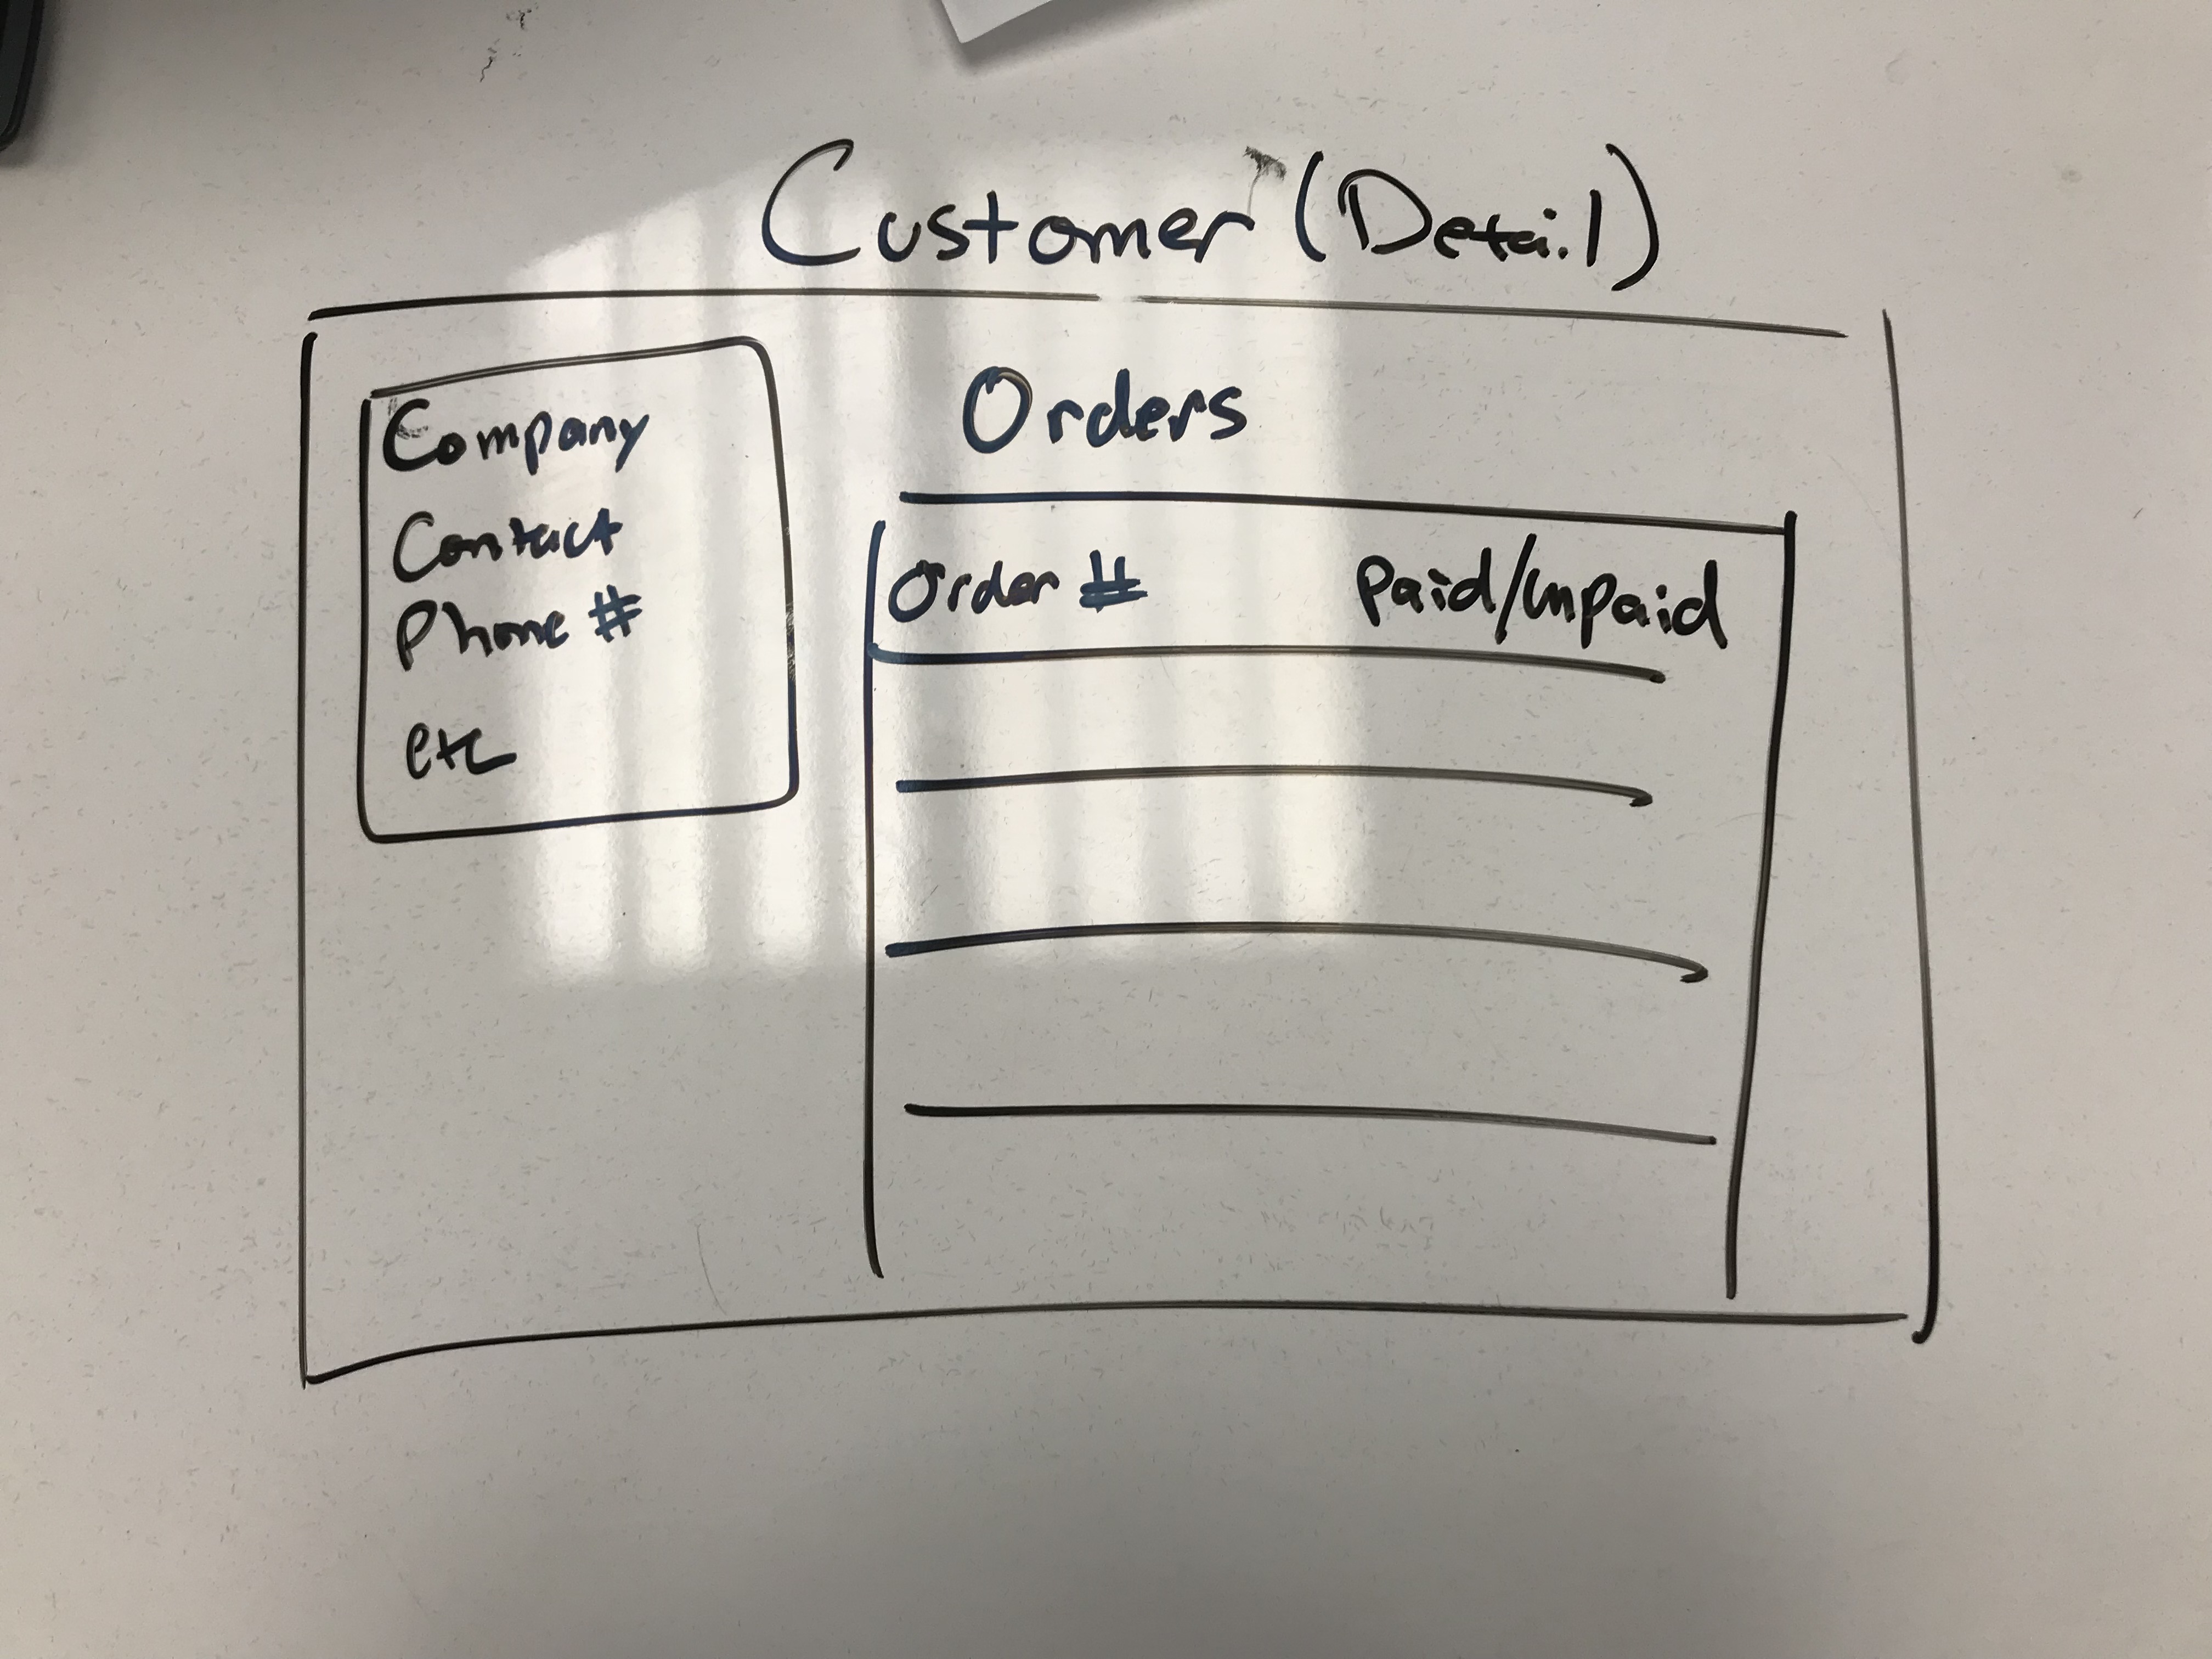 Customer (Detail)
Company
Contact
Phone #
etc
Orders
Order # Paid/unpaid